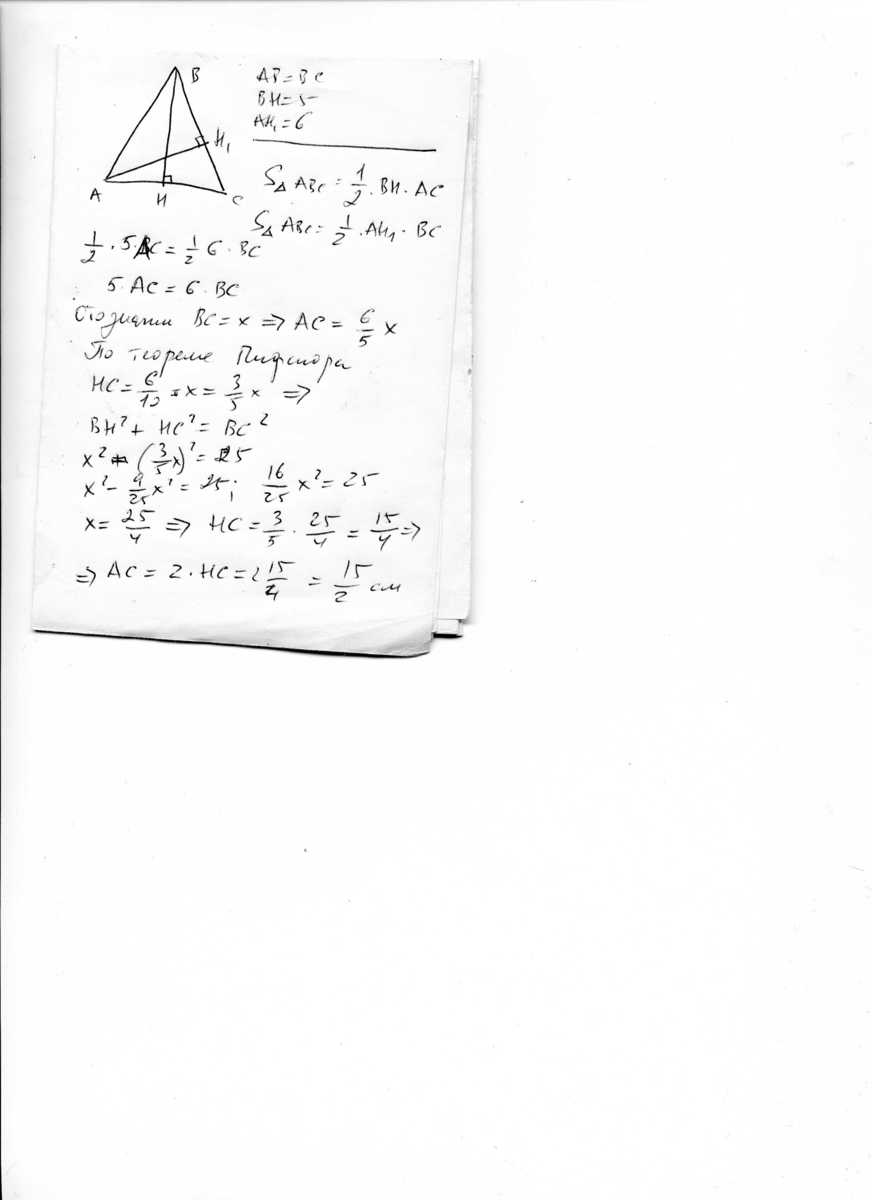 B
H₁
A
H
C
AB = BC
BH = 5
AH₁ = 6
S△ ABC = 1/2 · BH · AC
S△ ABC = 1/2 · AH₁ · BC
1/2 · 5 · AC = 1/2 6 · BC
5 · AC = 6 · BC
Обозначим BC = x ⇒ AC = 6/5 x
По теореме Пифагора
HC = 6/10 · x = 3/5 x ⇒
BH² + HC² = BC²
x² - (3/5 x)² = 25
x² - 9/25 x² = 25; 16/25 x² = 25
x = 25/4 ⇒ HC = 3/5 · 25/4 = 15/4 ⇒
⇒ AC = 2 · HC = 2 15/4 = 15/2 см